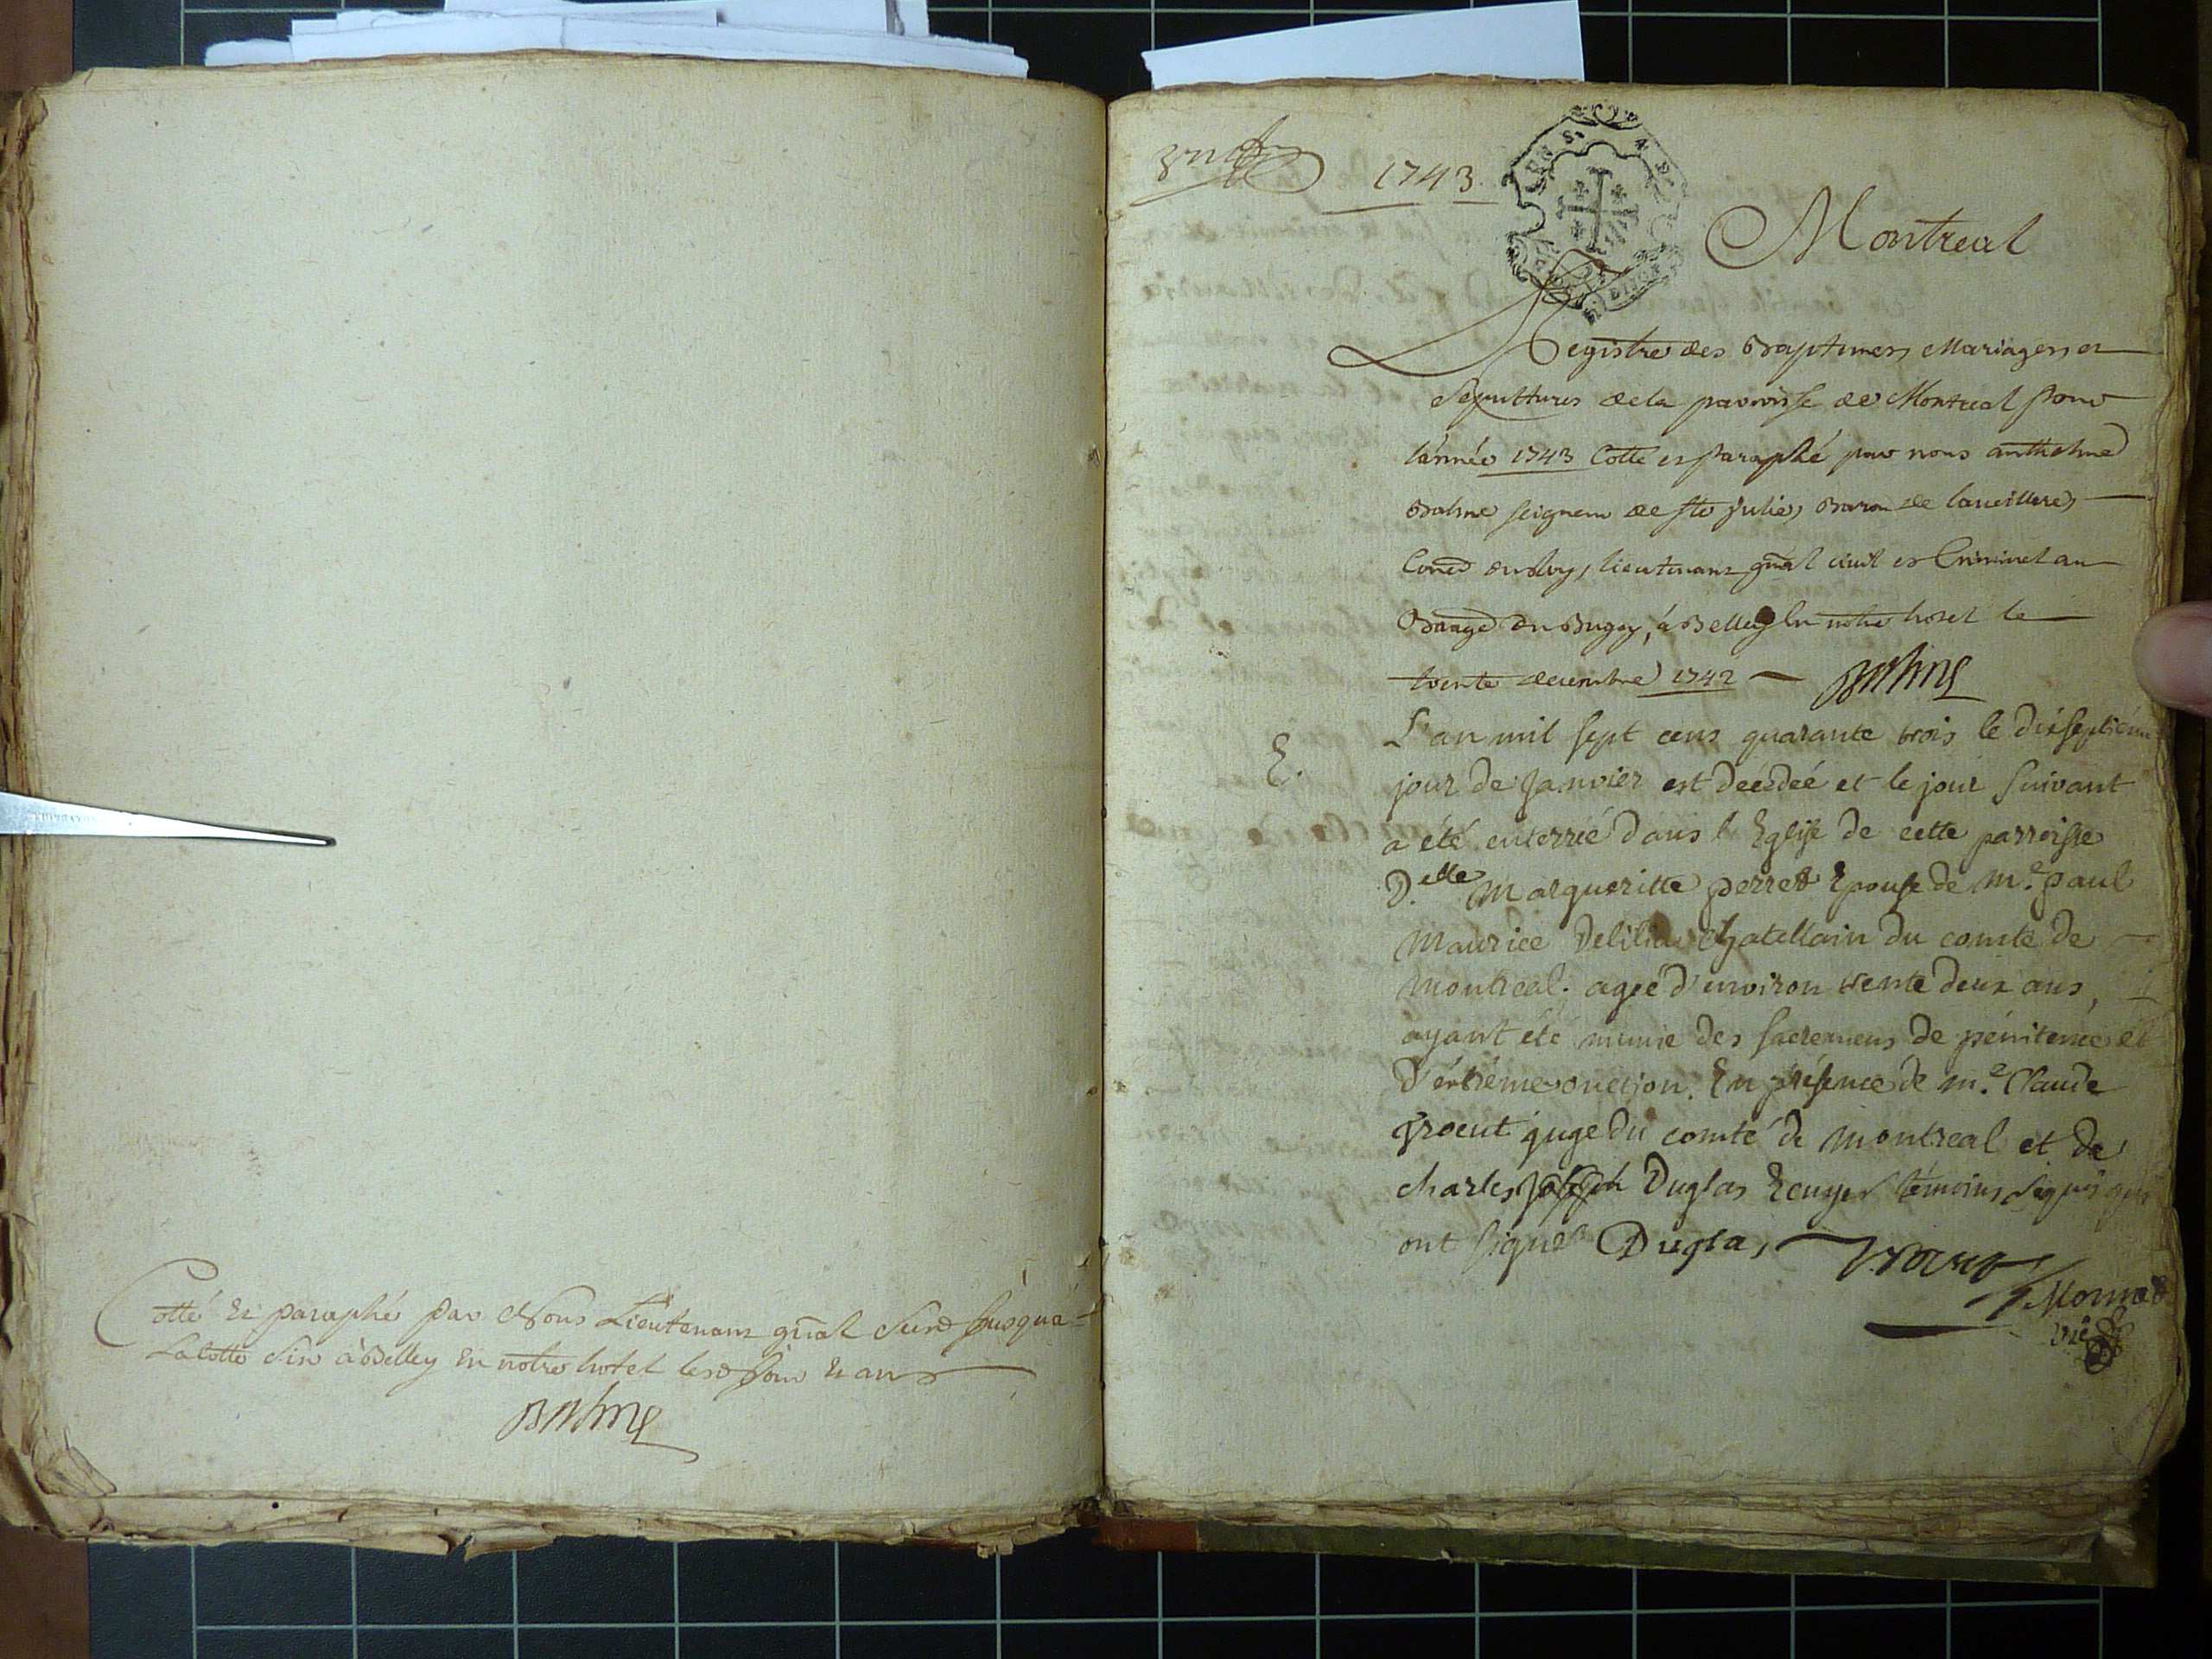 Cotté et paraphé par Nous Lieutenant gnãl susd jusqua
La cotte six à Belley en notre hotel lesd jour et an
Balme
1743.
Montreal
Registre des Baptemes Mariages et
Sepultures de la parroisse de Montreal pour
l'année 1743 Cotté et paraphé par nous anthelme
Balme seigneur de Ste Julie, Baron de
Coner du Roy, lieutenant gnãl civil et Criminel au
Baage du Bugey, á Belley en notre hotel le
trente decembre 1742 Balme
E. L'an mil sept cens quarante trois le dixseptiéme
jour de Janvier est decedeé et le jour suivant
a été enterreé dans l'Eglise de cette parroisse
D.elle Margueritte perret Epouse de M.e paul
Maurice Delilia chatellain du comté de
Montreal. ageé d'environ trente deux ans,
ayant été munie des sacremens de pénitence et
D'extréme onction. En présence de m.e Claude
juge du comté de Montreal et de
charles joseph Duglas Ecuyer témoins requis qui
ont signé Duglas